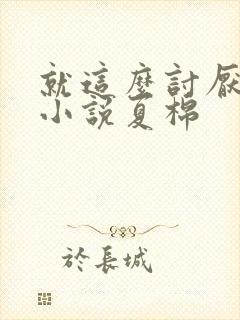 就這麼討厭
小說夏棉
於長城